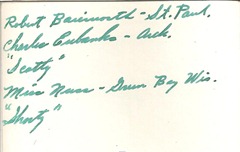 Robert Bainworth - St. Paul.
Charles Eubanks - Ark.
"Scotty"
Miss Nuss - Green Bay Wis.
"Shorty"